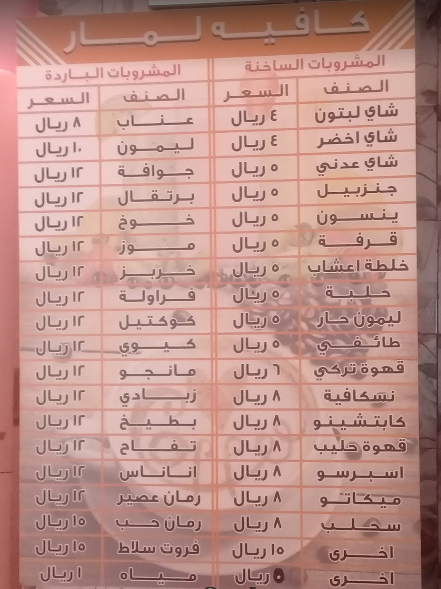 كافيه لمار
المشروبات الساخنة المشروبات الباردة
الصنف السعر الصنف السعر
شاي لبتون ٤ ريال عناب ٨ ريال
شاي اخضر ٤ ريال ليمون ١٠ ريال
شاي عدني ٥ ريال جوافة ١٢ ريال
جنزبيل ٥ ريال برتقال ١٢ ريال
ينسون ٥ ريال خوخ ١٢ ريال
قرفة ٥ ريال موز ١٢ ريال
خلطة اعشاب ٥ ريال خربز ١٢ ريال
حلبة ٥ ريال فراولة ١٢ ريال
ليمون حار ٥ ريال كوكتيل ١٢ ريال
طائفي ٥ ريال كيوي ١٢ ريال
قهوة تركي ٦ ريال مانجو ١٢ ريال
نسكافية ٨ ريال زبادي ١٢ ريال
كابتشينو ٨ ريال بطيخ ١٢ ريال
قهوة حليب ٨ ريال تفاح ١٢ ريال
اسبرسو ٨ ريال اناناس ١٢ ريال
ميكاتو ٨ ريال رمان عصير ١٢ ريال
سحلب ٨ ريال رمان حب ١٥ ريال
اخرى ١٥ ريال فروت سلاط ١٥ ريال
اخرى ٥ ريال مياه ١ ريال